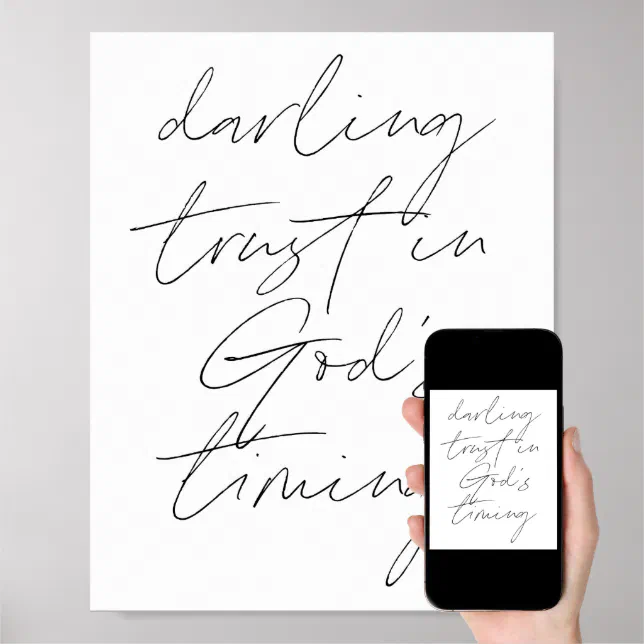 darling
trust in
God's
timing
darling
trust in
God's
timing